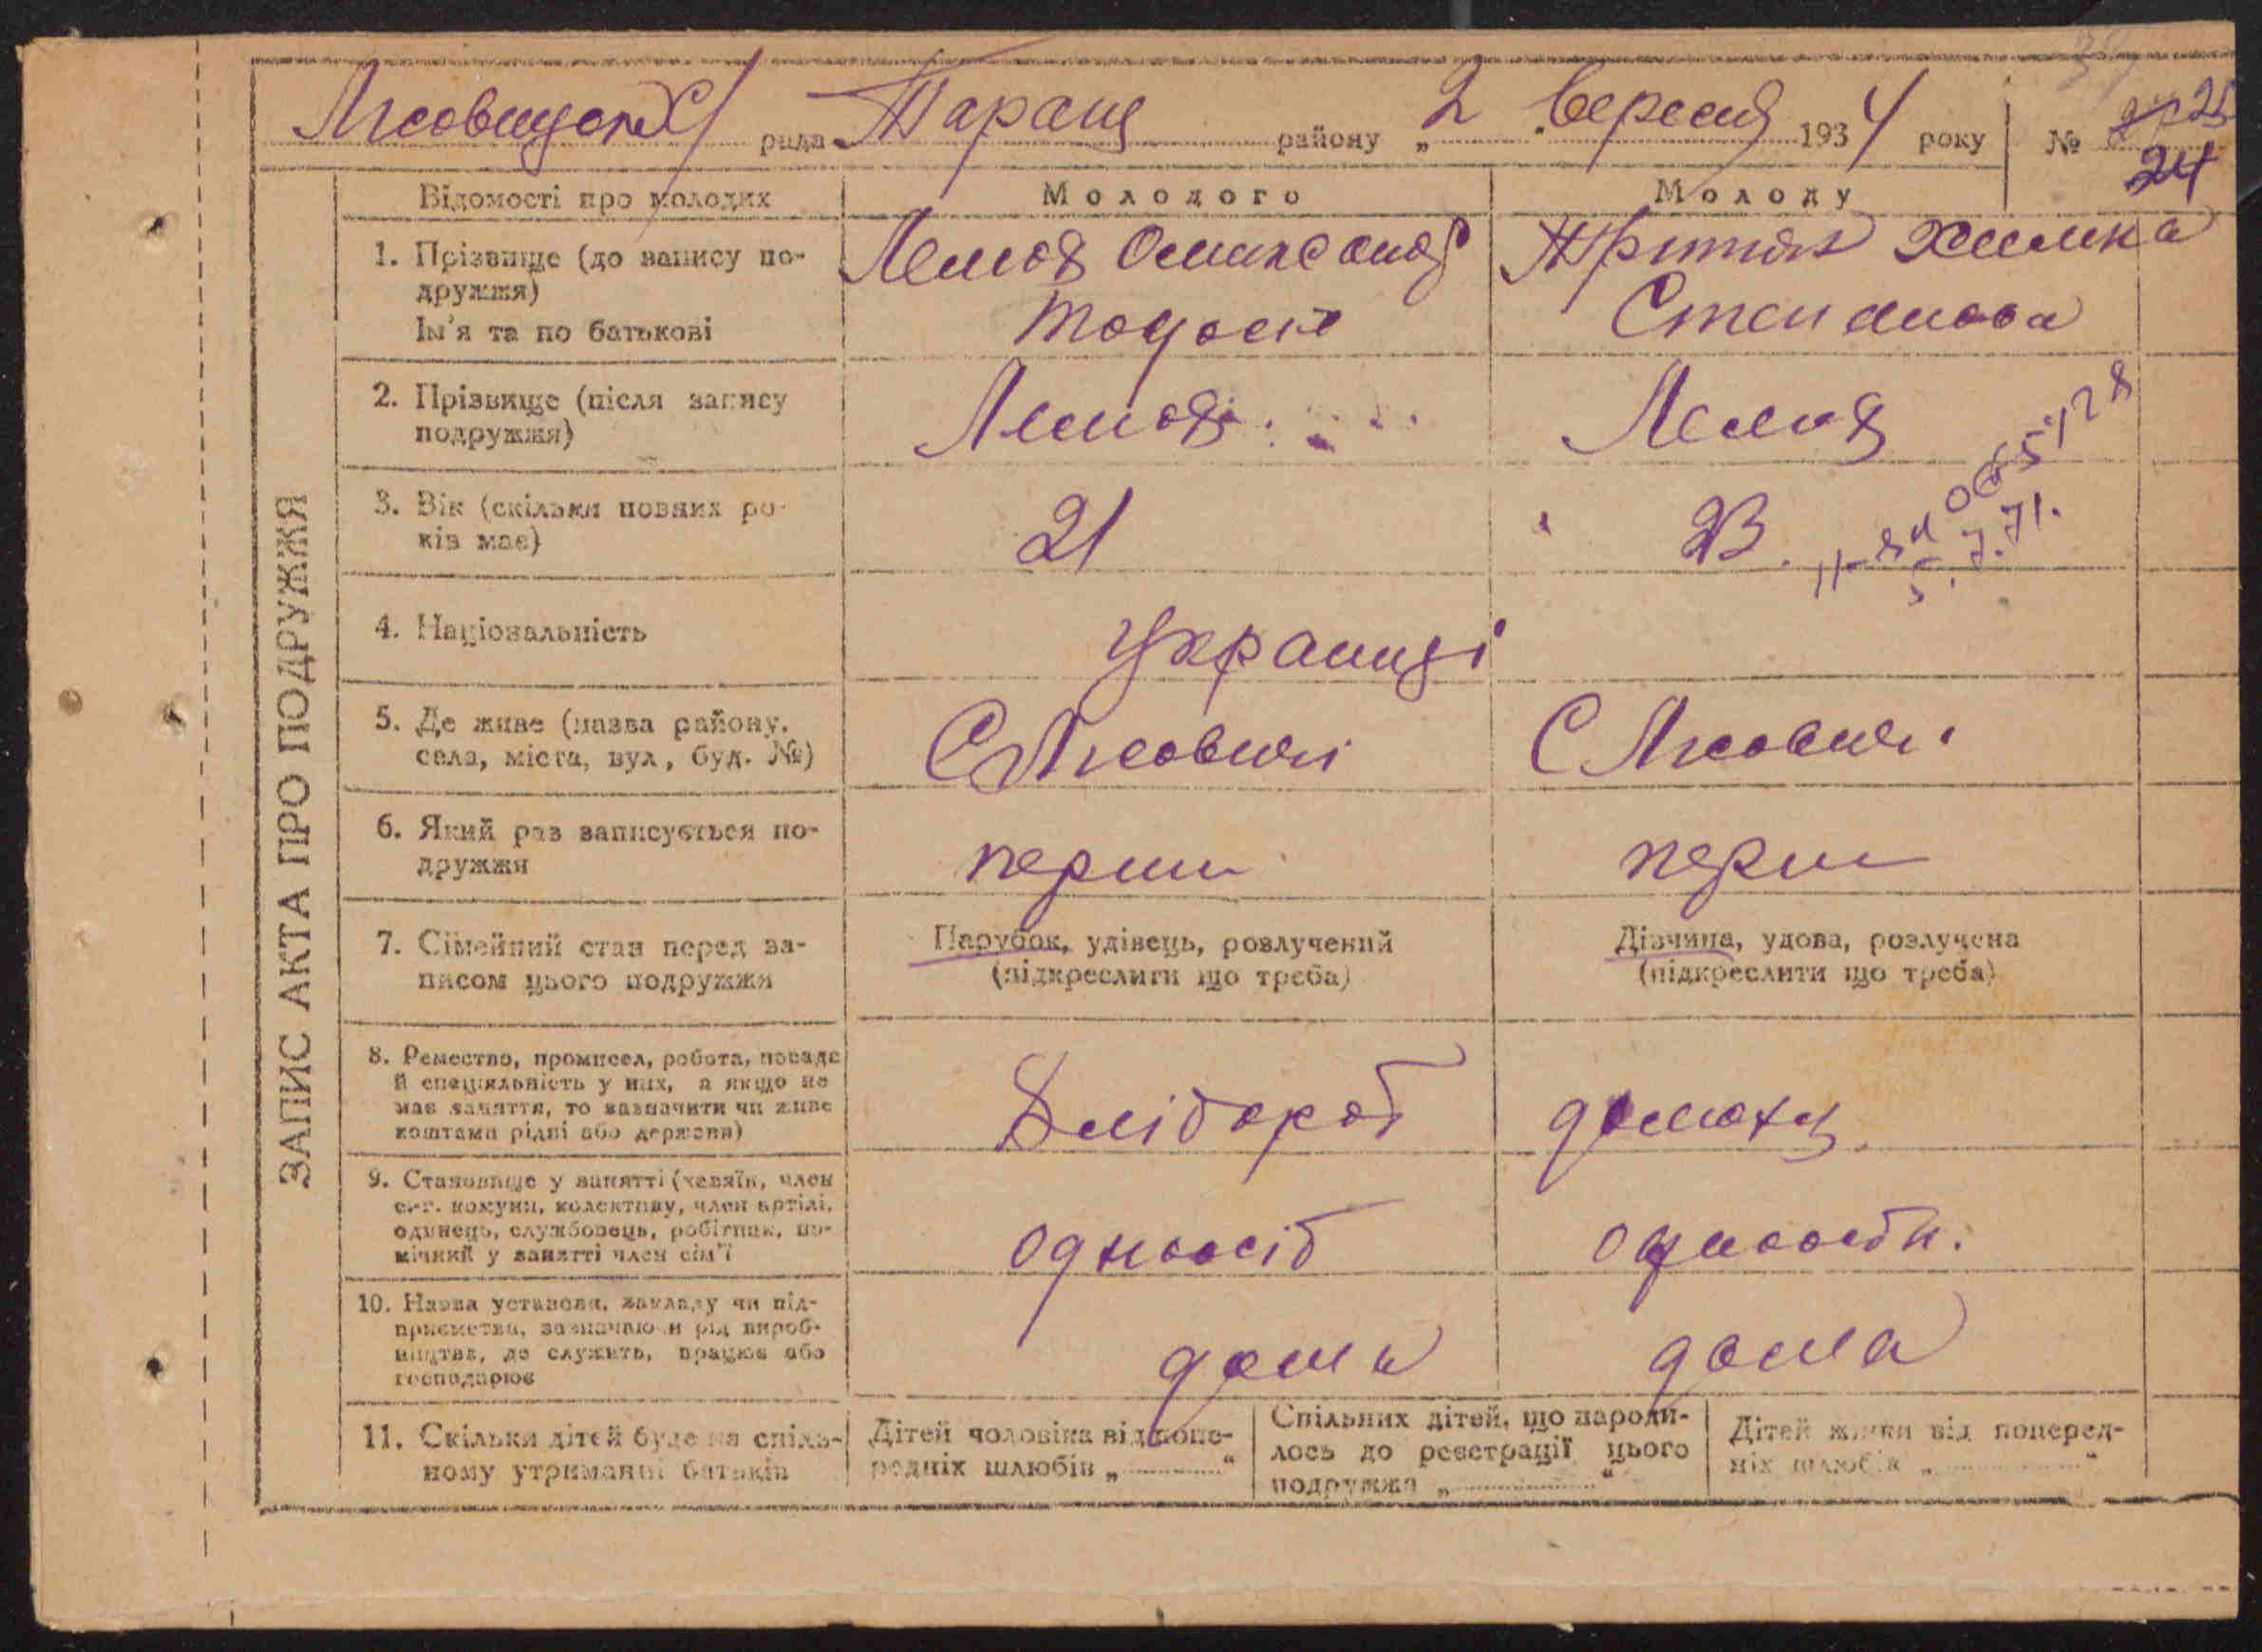 Лісовицьк С/ рада Таращ району „2" вересня 1934 року № 25
24
Відомості про молодих
Молодого
Молоду
1. Прізвище (до запису по-
дружжя)
Ім'я та по батькові
Олександр
Тодосів
Степанова
2. Прізвище (після запису
подружжя)
3. Вік (скільки повних ро-
ків має)
21
23
5.7.71.
4. Національність
Українці
5. Де живе (назва району,
села, міста, вул, буд. №)
С Лісовичі
С Лісовичі
6. Який раз записується по-
дружжя
перши
перш
7. Сімейний стан перед за-
писом цього подружжя
Парубок, удівець, розлучений
(підкреслити що треба)
Дівчина, удова, розлучена
(підкреслити що треба)
8. Ремество, промисел, робота, посада
й спеціяльність у них, а якщо не
має заняття, то зазначити чи живе
коштами рідні або держави)
Хлібороб
домогц.
9. Становище у занятті (хазяїн, член
с.-г. комуни, колективу, член артілі,
одинець, службовець, робітник, по-
мічний у занятті член сім'ї
одноосіб
одноосібн.
10. Назва установи, закладу чи під-
приємства, зазначаючи рід вироб-
ництва, де служить, працює або
господарює
дома
дома
11. Скільки дітей буде на спіль-
ному утриманні батьків
Дітей чоловіка від попе-
редніх шлюбів „ "
Спільних дітей, що народи-
лось до реєстрації цього
подружжя „ "
Дітей жінки від поперед-
ніх шлюбів „ "
ЗАПИС АКТА ПРО ПОДРУЖЖЯ